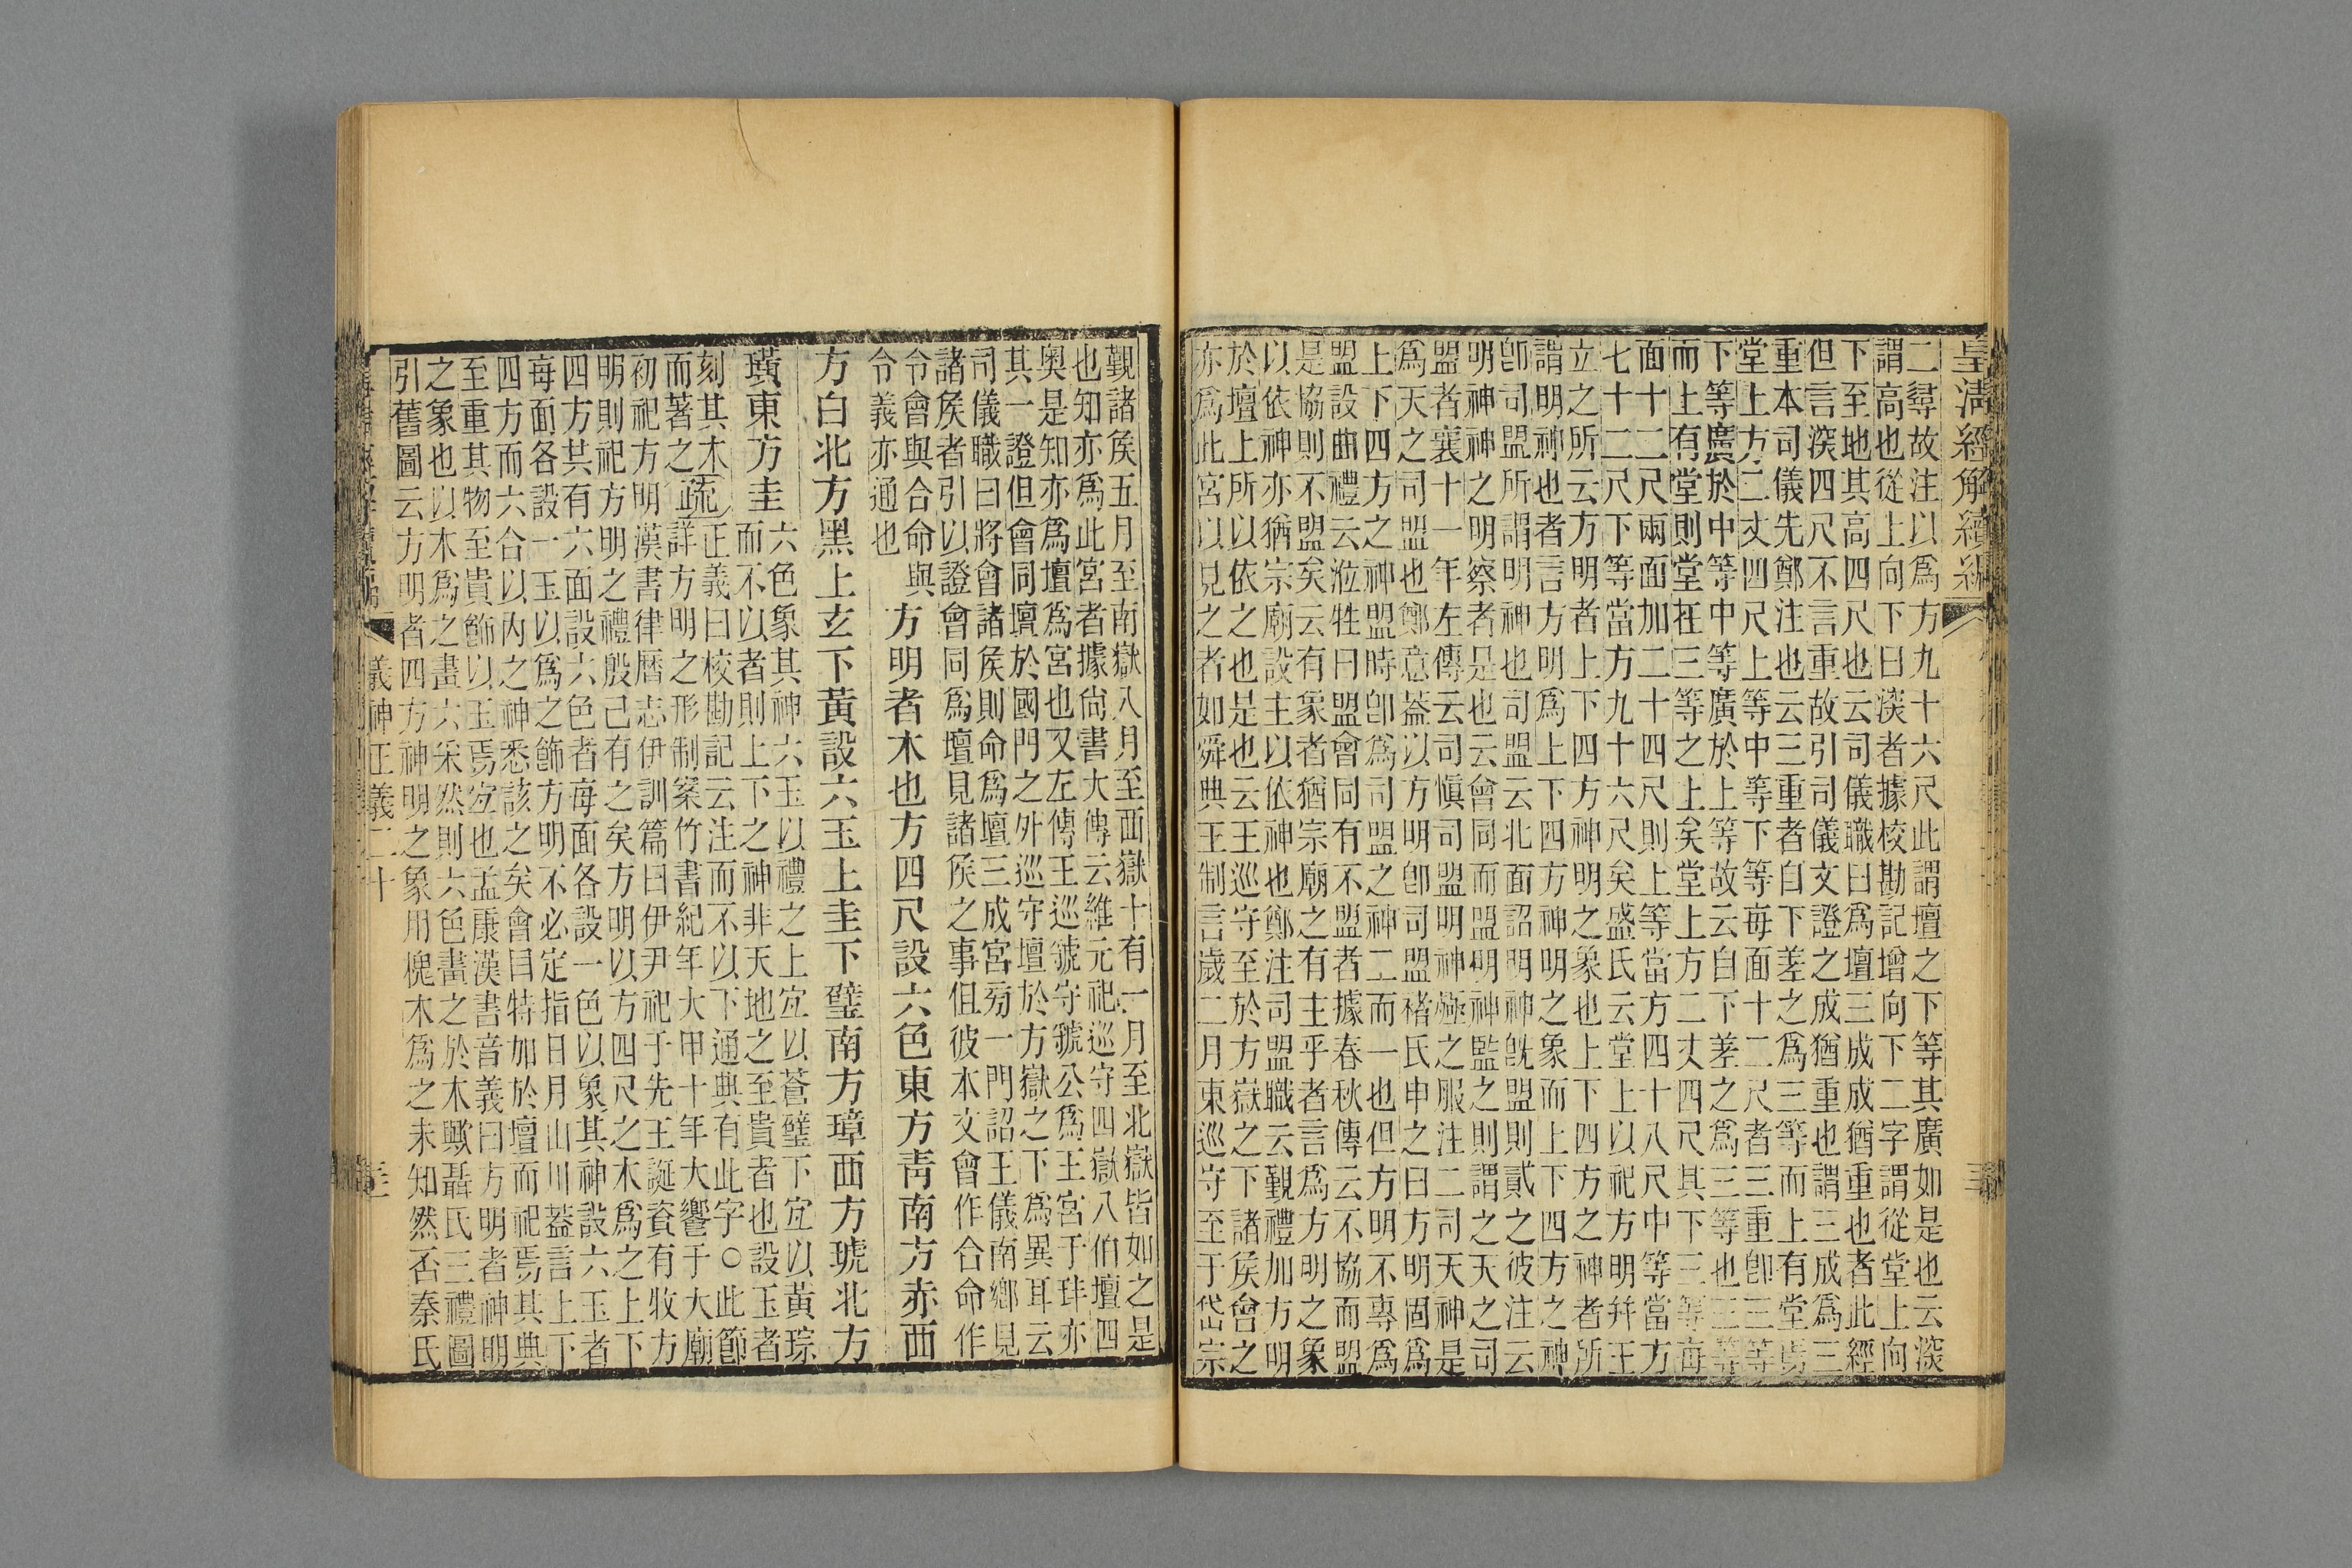 皇淸經解續編
二尋故注以爲方九十六尺此謂壇之下等其廣如是也云深
謂高也從上向下曰深者據校勘記增向下二字謂從堂上向
下至地其高四尺也云司儀職曰爲壇三成成猶重也者此經
但言深四尺不言重故引司儀文證之成猶重也謂三成爲三
重本司儀先鄭注也云三重者自下差之爲三等而上有堂焉
堂上方二丈四尺上等中等下等每面十二尺者三重卽三等
下等廣於中等中等廣於上等故云自下差之爲三等也三等
而上有堂則堂在三等之上矣堂上方二丈四尺其下三等每
面十二尺兩面加二十四尺則上等當方四十八尺中等當方
七十二尺下等當方九十六尺矣盛氏云堂上以祀方明幷王
立之所云方明者上下四方神明之象也上下四方之神者所
謂明神也者言方明爲上下四方神明之象而上下四方之神
卽司盟所謂明神也司盟云北面詔明神旣盟則貳之彼注云
明神神之明察者是也云會同而盟明神監之則謂之天之司
盟者襄十一年左傳云司愼司盟明神殛之服注二司天神是
爲天之司盟也鄭意葢以方明卽司盟褚氏申之曰方明固爲
上下四方之神盟時卽爲司盟之神二而一也但方明不專爲
盟設曲禮云涖牲曰盟會同有不盟者據春秋傳云不協而盟
是協則不盟矣云有象者猶宗廟之有主乎者言爲方明之象
以依神亦猶宗廟設主以依神也鄭注司盟職云覲禮加方明
於壇上所以依之也是也云王巡守至於方嶽之下諸侯會之
亦爲此宮以見之者如舜典王制言歲二月東巡守至于岱宗
覲諸侯五月至南嶽八月至西嶽十有一月至北嶽皆如之是
也知亦爲此宮者據尙書大傳云維元祀巡守四嶽八伯壇四
奧是知亦爲壇爲宮也又左傳王巡虢守虢公爲王宮于玤亦
其一證但會同壇於國門之外巡守壇於方嶽之下爲異耳云
司儀職曰將會諸侯則命爲壇三成宮旁一門詔王儀南鄉見
諸侯者引以證會同爲壇見諸侯之事但彼本文會作合命作
令會與合命與
令義亦通也
方明者木也方四尺設六色東方靑南方赤西
方白北方黑上玄下黃設六玉上圭下璧南方璋西方琥北方
璜東方圭
六色象其神六玉以禮之上宜以蒼璧下宜以黃琮
而不以者則上下之神非天地之至貴者也設玉者
刻其木
而著之
疏
正義曰校勘記云注而不以下通典有此字○此節
詳方明之形制案竹書紀年大甲十年大饗于大廟
初祀方明漢書律曆志伊訓篇曰伊尹祀于先王誕資有牧方
明則祀方明之禮殷已有之矣方明以方四尺之木爲之上下
四方共有六面設六色者每面各設一色以象其神設六玉者
每面各設一玉以爲之飾方明不必定指日月山川葢言上下
四方而六合以內之神悉該之矣會日特加於壇而祀焉其典
至重其物至貴飾以玉焉宜也孟康漢書音義曰方明者神明
之象也以木爲之畫六采然則六色畫之於木歟聶氏三禮圖
引舊圖云方明者四方神明之象用槐木爲之未知然否秦氏
儀禮正義二十